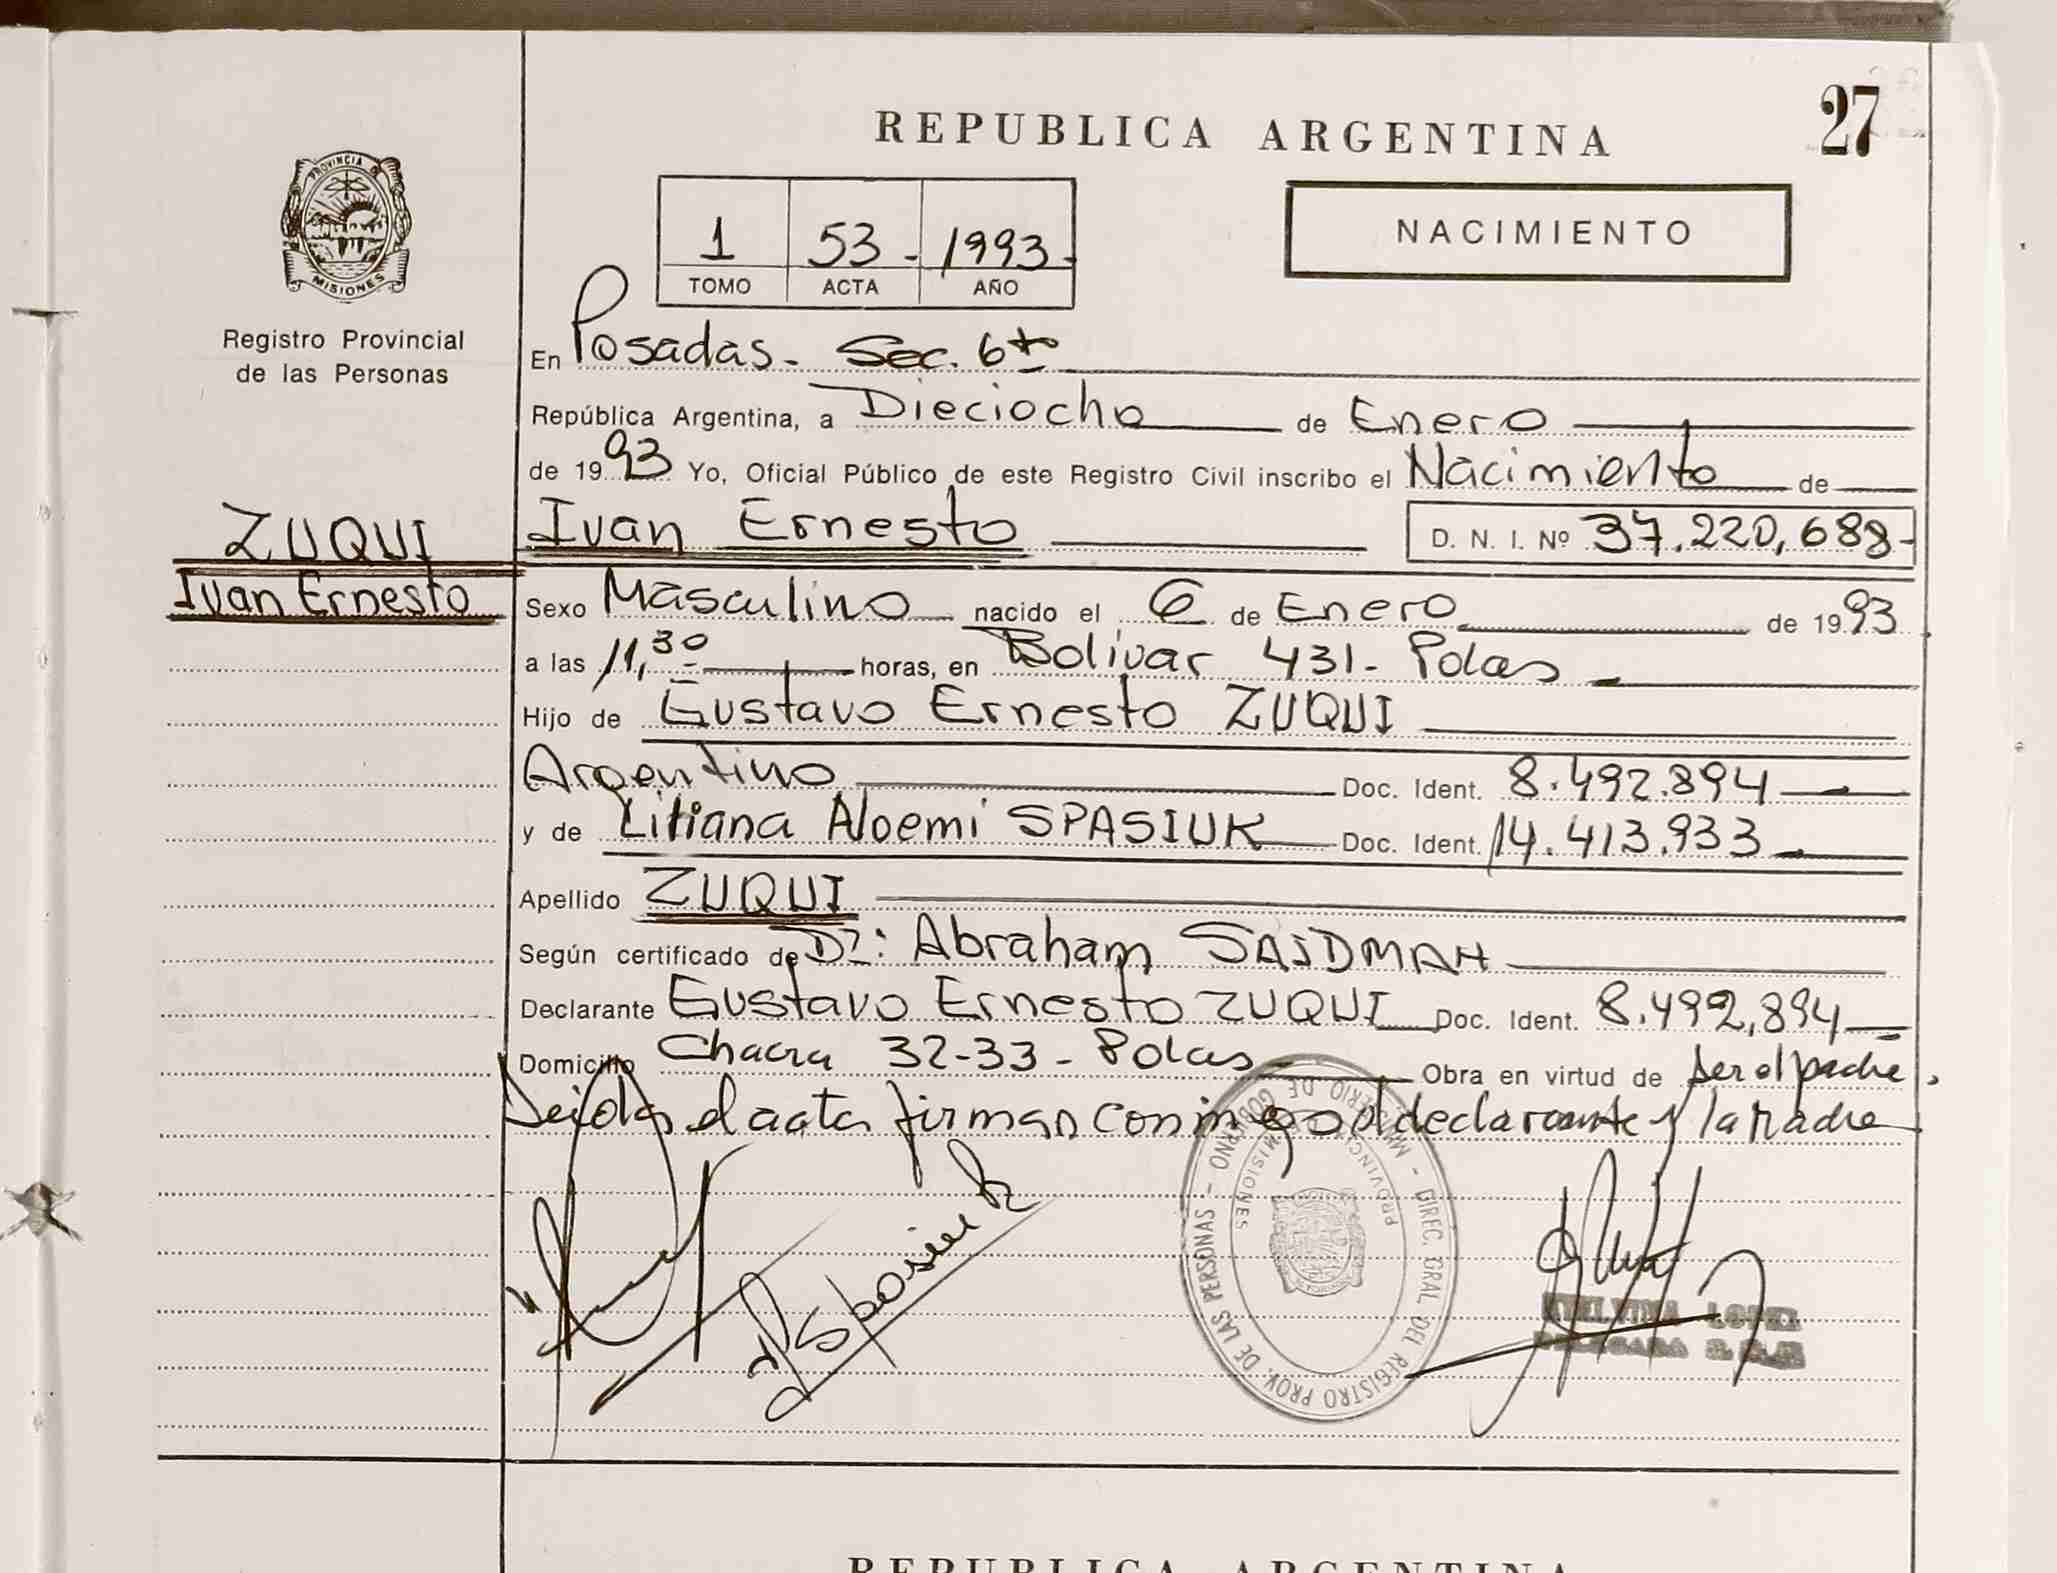 27
REPUBLICA ARGENTINA
NACIMIENTO
1 53- 1993-
TOMO ACTA AÑO
PROVINCIA
MISIONES
Registro Provincial
de las Personas
En Posadas- Sec. 6ta
República Argentina, a Dieciocho de Enero
de 1993 Yo, Oficial Público de este Registro Civil inscribo el Nacimiento de
ZUQUI
Ivan Ernesto
Ivan Ernesto D. N. I. Nº 37.220,688-
Sexo Masculino nacido el 6 de Enero de 1993
a las 11,30 horas, en Bolívar 431- Pdas
Hijo de Gustavo Ernesto ZUQUI
Argentino Doc. Ident. 8.492.894
y de Liliana Noemi SPASIUK Doc. Ident. 14.413.933
Apellido ZUQUI
Según certificado de Dr: Abraham SAIDMAN
Declarante Gustavo Ernesto ZUQUI Doc. Ident. 8.492,894
Domicilio Chacra 32-33- Pdas Obra en virtud de ser el padre.
Leida el acta firman conmigo el declarante y la Madre
Spasiuk
MINISTERIO DE GOBIERNO - DIREC. GRAL. DEL REGISTRO PROV. DE LAS PERSONAS -
PROVINCIA MISIONES
REPUBLICA ARGENTINA